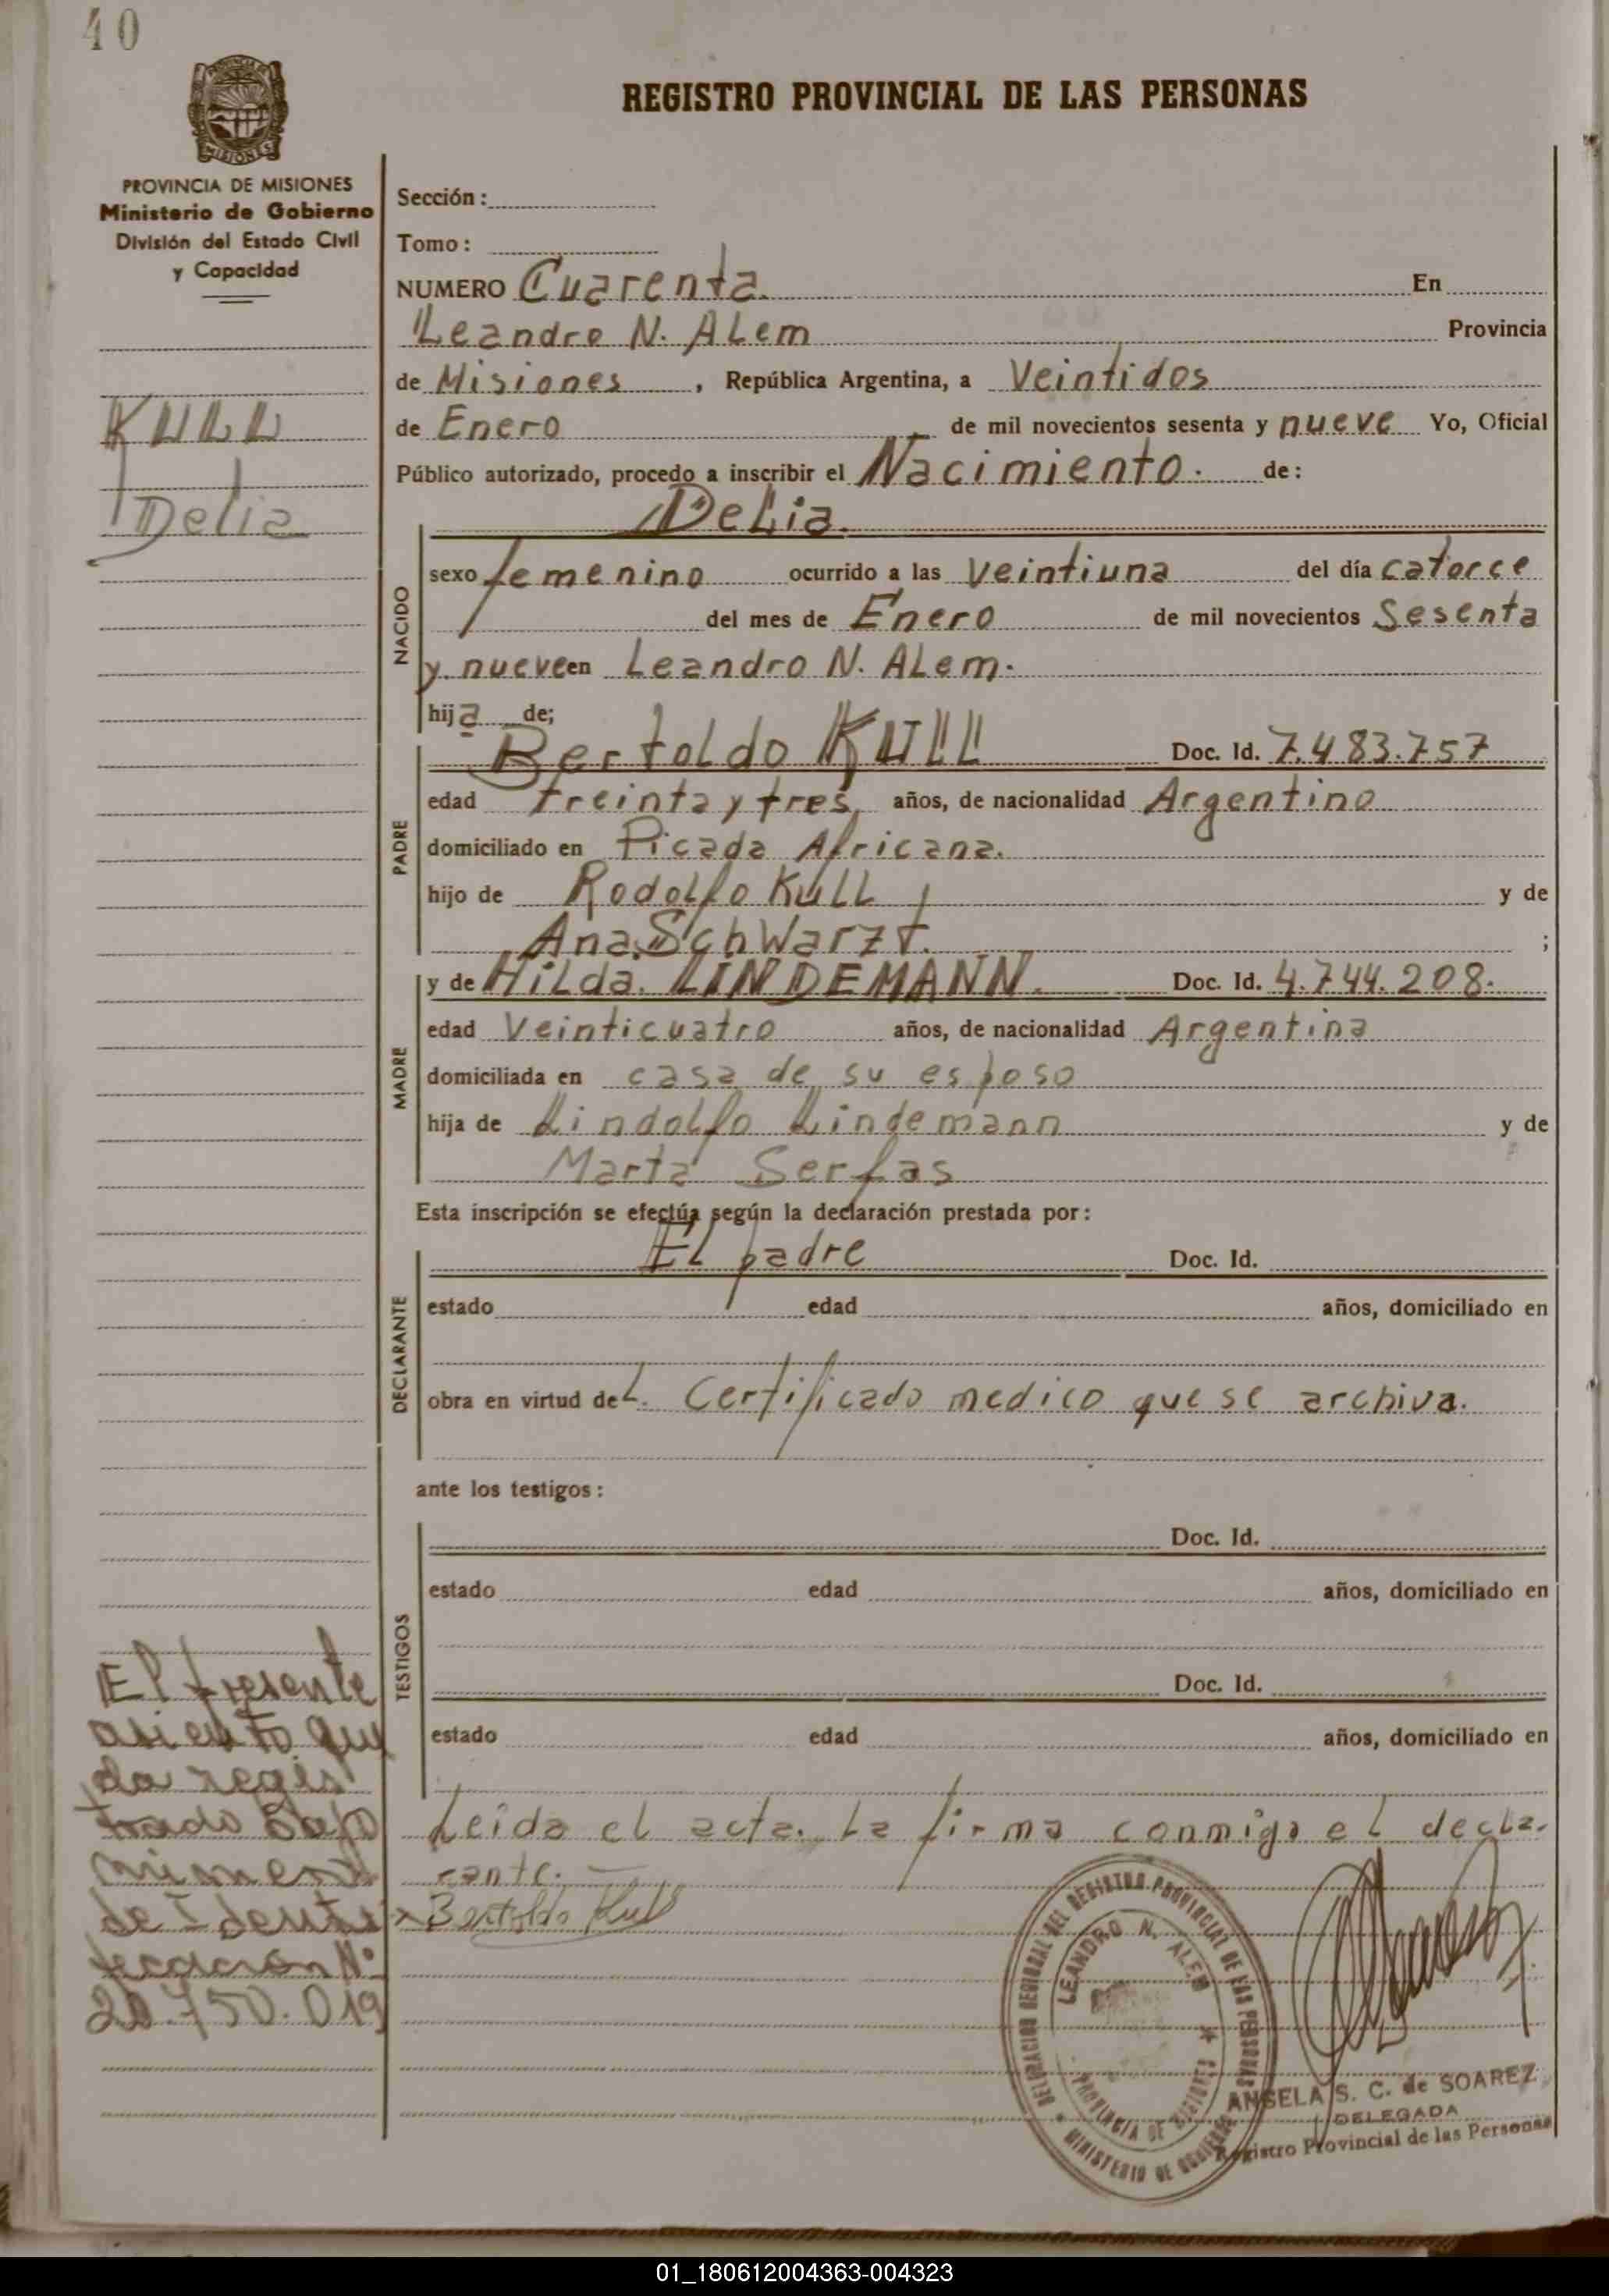 40
MISIONES
PROVINCIA DE MISIONES
Ministerio de Gobierno
División del Estado Civil
y Capacidad
KULL
Delia
REGISTRO PROVINCIAL DE LAS PERSONAS
Sección :
Tomo :
NUMERO Cuarenta. En
Leandro N. ALem Provincia
de Misiones , República Argentina, a Veintidos
de Enero de mil novecientos sesenta y nueve Yo, Oficial
Público autorizado, procedo a inscribir el Nacimiento. de :
DeLia.
NACIDO
sexo femenino ocurrido a las Veintiuna del día catorce
del mes de Enero de mil novecientos Sesenta
y nueve en Leandro N. ALem.
hija de;
PADRE
BertoLdo KULL Doc. Id. 7.483.757
edad treinta y tres, años, de nacionalidad Argentino
domiciliado en Picada Africana.
hijo de RodoLfo KuLL y de
Ana SchWarzt. ;
MADRE
y de HiLda. LINDEMANN. Doc. Id. 4.744.208.
edad Veinticuatro años, de nacionalidad Argentina
domiciliada en casa de su esposo
hija de LindoLfo Lindemann y de
Marta Serfas
Esta inscripción se efectúa según la declaración prestada por :
DECLARANTE
EL padre Doc. Id.
estado edad años, domiciliado en
obra en virtud deL. Certificado medico que se archiva.
ante los testigos :
TESTIGOS
Doc. Id.
estado edad años, domiciliado en
Doc. Id.
estado edad años, domiciliado en
Leida el acta. La firma conmigo el decla-
rante.
x Bertoldo Kull
El presente
asiento que
da regis
trado Bajo
numero
de Identi
ficación N°
20.750.019
DELEGACION REGIONAL DEL REGISTRO PROVINCIAL DE LAS PERSONAS
MINISTERIO DE GOBIERNO
LEANDRO N. ALEM
PROVINCIA DE MISIONES
ANGELA S. C. de SOAREZ
DELEGADA
Registro Provincial de las Personas
01_180612004363-004323